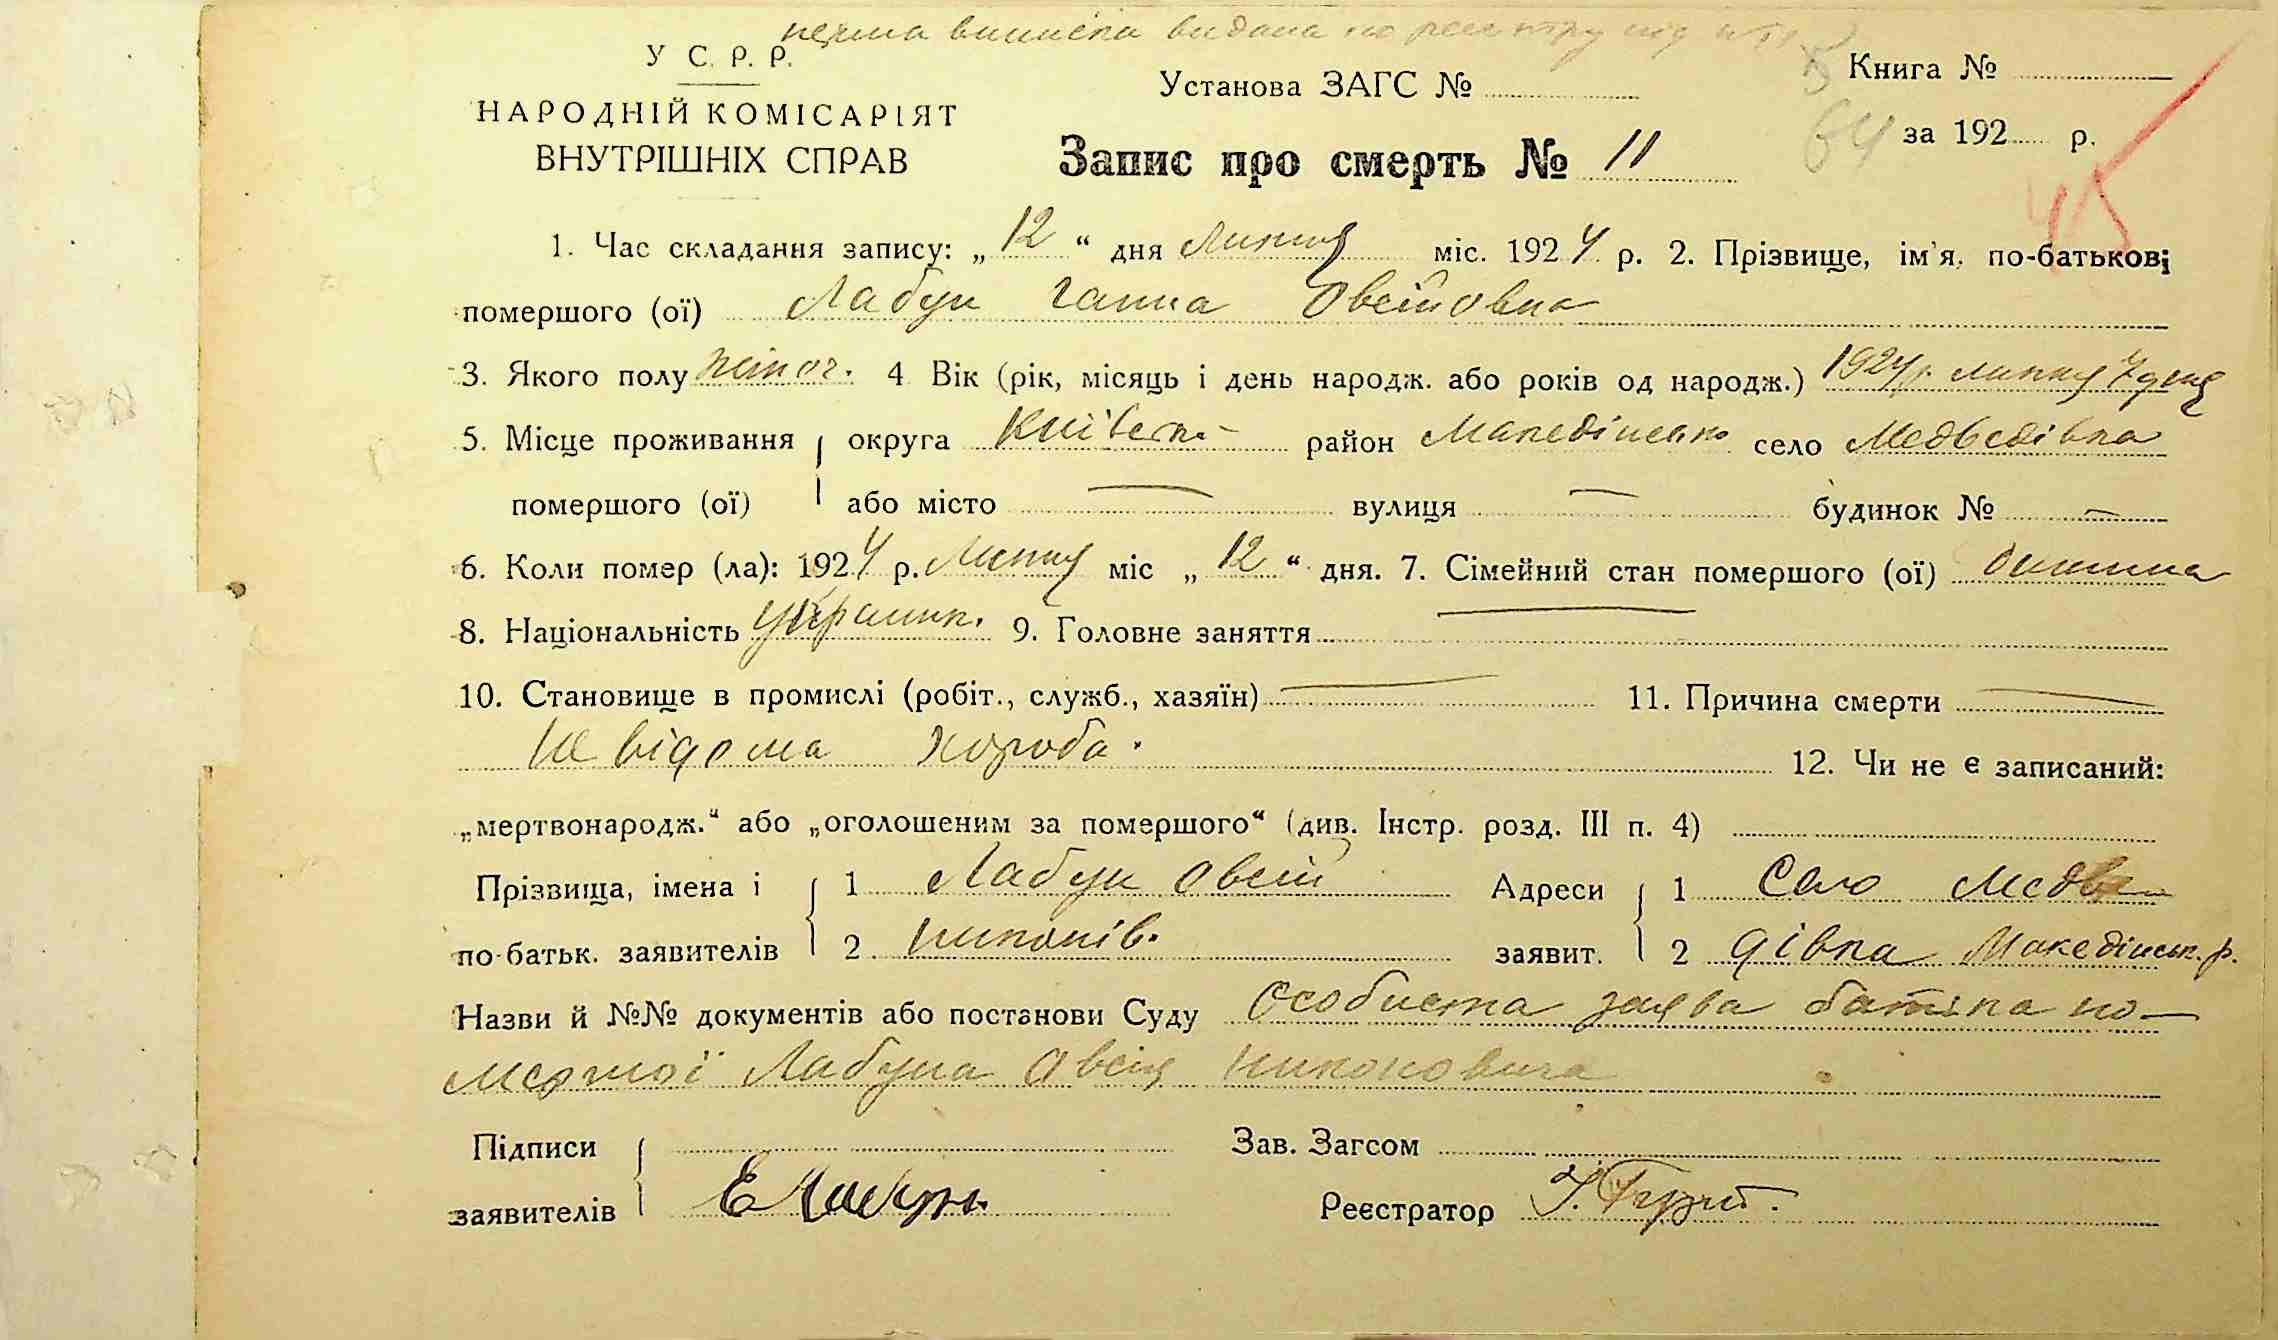 перша виписка видана по реєстру під №
У С. Р. Р.
НАРОДНІЙ КОМІСАРІЯТ
ВНУТРІШНІХ СПРАВ
Установа ЗАГС №
Книга №
64 за 192 р.
Запис про смерть № 11
45
1. Час складання запису: „12“ дня Липня міс. 1924 р. 2. Прізвище, ім'я, по-батькові
помершого (ої) Лабун Ганна Овсіївна
3. Якого полу жіноч. 4 Вік (рік, місяць і день народж. або років од народж.) 1924 р. липня 7 дня
5. Місце проживання округа Київська район Македінсько село Медведівка
помершого (ої) або місто — вулиця — будинок № —
6. Коли помер (ла): 1924 р. Липня міс „12“ дня. 7. Сімейний стан помершого (ої)
8. Національність Україин. 9. Головне заняття —
10. Становище в промислі (робіт., служб., хазяїн) — 11. Причина смерти —
не відома хороба.
12. Чи не є записаний:
„мертвонародж.“ або „оголошеним за помершого“ (див. Інстр. розд. III п. 4)
Прізвища, імена і 1 Лабун Овсій Адреси 1 Село Медве
по-батьк. заявителів 2 Никонів. заявит. 2 дівка Македінськ. р.
Назви й №№ документів або постанови Суду Особиста заява батька по-
мершої Лабуна Овсія Никоновича
Підписи Зав. Загсом
заявителів Е Лабун Реєстратор